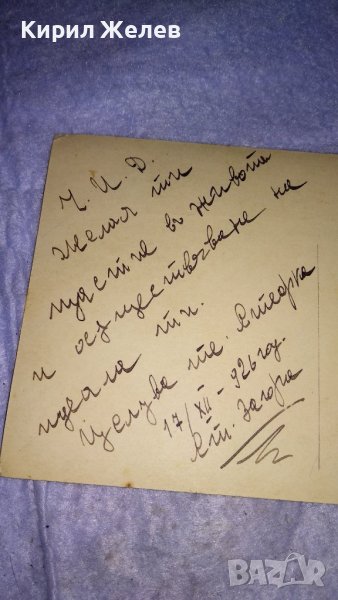 Кирил Желев
Ч. И. Д.
Желая ти
щастие въ живота
и осъществяване на
идеала ти.
Целува те: Стефка
17/XII - 926 год.
Ст. Загора
BAZAR